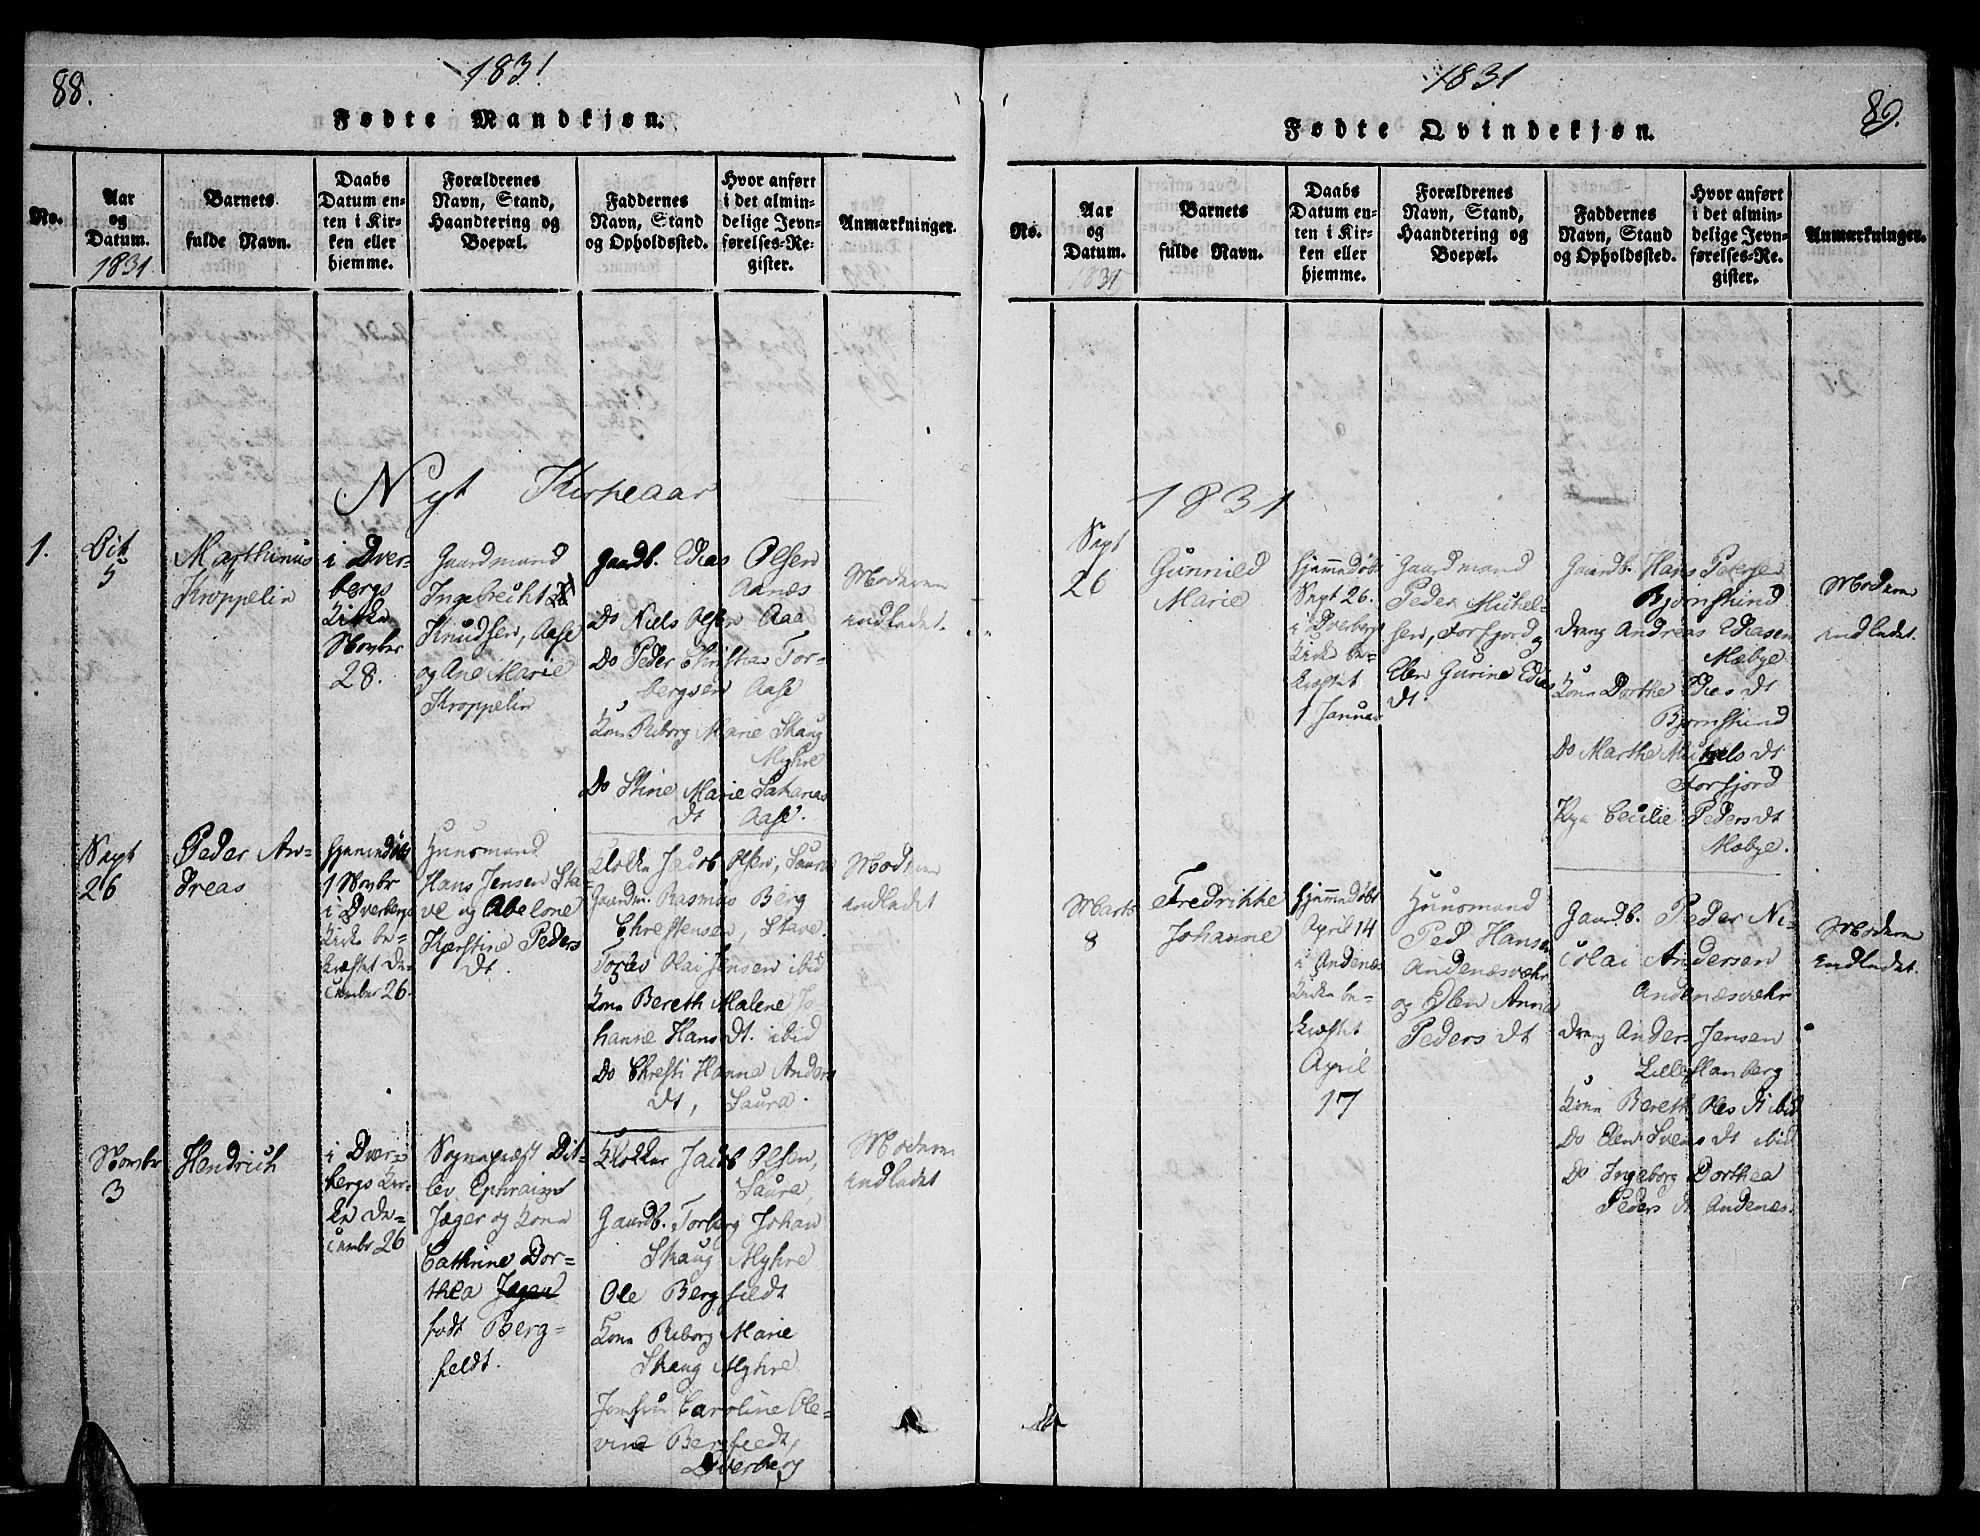 88.
1831
Fødte Mandkjøn.
No.
Aar
og
Datum.
1831
Barnets
fulde Navn.
Daabs
Datum en-
ten i Kir-
ken eller
hjemme.
Forældrenes
Navn, Stand,
Haandtering og
Boepæl.
Faddernes
Navn, Stand
og Opholdssted.
Hvor anført
i det almin-
delige Jevn-
førelses-Re-
gister.
Anmærkninger.
Nyt Kirkeaar
1.
Oct
5
Marthinus
Kroppelin
i Dver-
bergs
Kirke
Novbr
28.
Gaardmand
Ingebrecht
Knudsen, Aase
og Ane Marie
Kroppelin
Gaardb. Elias Olsen
Aanæs
Do Niels Olsen Aae
Do Peder Christian Tor-
bergsen Aase
Kone Riborg Marie Skaug
Myhre
Do Stine Marie Sakarias
dt Aase.
Moderen
indledet.
Sept
26
Peder An-
dreas
Hjemmedøbt
1 Novbr
i Dverbergs
Kirke be-
kræftet De-
cember 26.
Huusmand
Hans Jensen Sta-
ve og Abelone
Kjerstine Peders
dt.
Klokker Jacob Olsen, Saura
Gaardm. Rasmus Berg
Christensen, Stave.
Olai Jensen ibid
Kone Bereth Malene Jo-
hanne Hans Dt. ibid
Do Christi Hanna Anders
dt, Saura.
Moderen
indledet
Novbr
3
Hendrich
i Dver-
bergs Kir-
ke De-
cembr 26
Sognepræst Dit-
lev Ephraim
Jæger og Kone
Cathrine Dor-
thea Jæger
født Berg-
feldt.
Klokker Jacob Olsen,
Saura,
Gaardb. Torberg Johan
Skaug Myhre
Ole Bergfeldt
Kone Riborg Marie
Skaug Myhre
Jomfru Caroline Ole-
vine Bergfeldt,
Dverberg
Moderen
indledet
1831
89.
Fødte Qvindekjøn.
No.
Aar
og
Datum.
1831
Barnets
fulde Navn.
Daabs
Datum en-
ten i Kir-
ken eller
hjemme.
Forældrenes
Navn, Stand,
Haandtering og
Boepæl.
Faddernes
Navn, Stand
og Opholdssted.
Hvor anført
i det almin-
delige Jevn-
førelses-Re-
gister.
Anmærkninger.
1831
Sept
26
Gunnild
Marie
Hjemmedøbt
Sept 26.
i Dverbergs
Kirke be-
kræftet
1 Januar
Gaardmand
Peder Michel-
sen, Forfjord og
Elen Gurine Elias
dt.
Gaardb. Hans Petersen
Bjørnskind
Dreng Andreas Eliasen
Mæbye
Kone Dorthe Elies dt
Bjørnskind
Do Marthe Michels dt
Forfjord
Pige Cecilie Peders dt
Mæbye.
Moderen
indledet.
Marts
8
Fredrikke
Johanne
Hjemmedøbt
April 14
i Andenæs
Kirke be-
kræftet
April
17
Huusmand
Ped Hansen
Andenæsvæhr
og Elen Anna
Peders dt
Gaardb. Peder Ni-
colai Andersen
Andenæsvæhr
Dreng Anders Jensen
Kone Bereth Oles dt ibid
Do Elen Svens dt ibid
Do Ingeborg Dorthea
Peders dt Andenæs.
Moderen
indledet.